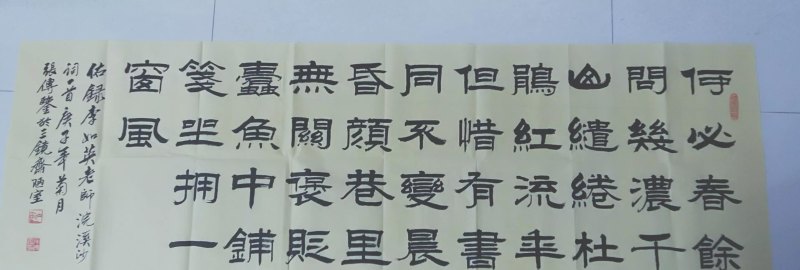 何必春餘
問幾濃千
山繾綣杜
鵑紅流年
但惜有書
同不變晨
昏顏巷里
無關褒貶
蠹魚中鋪
箋坐拥一
窗風
錄李如英老師浣溪沙
詞一首庚子年菊月
張傳鑒於三鏡齋陋室